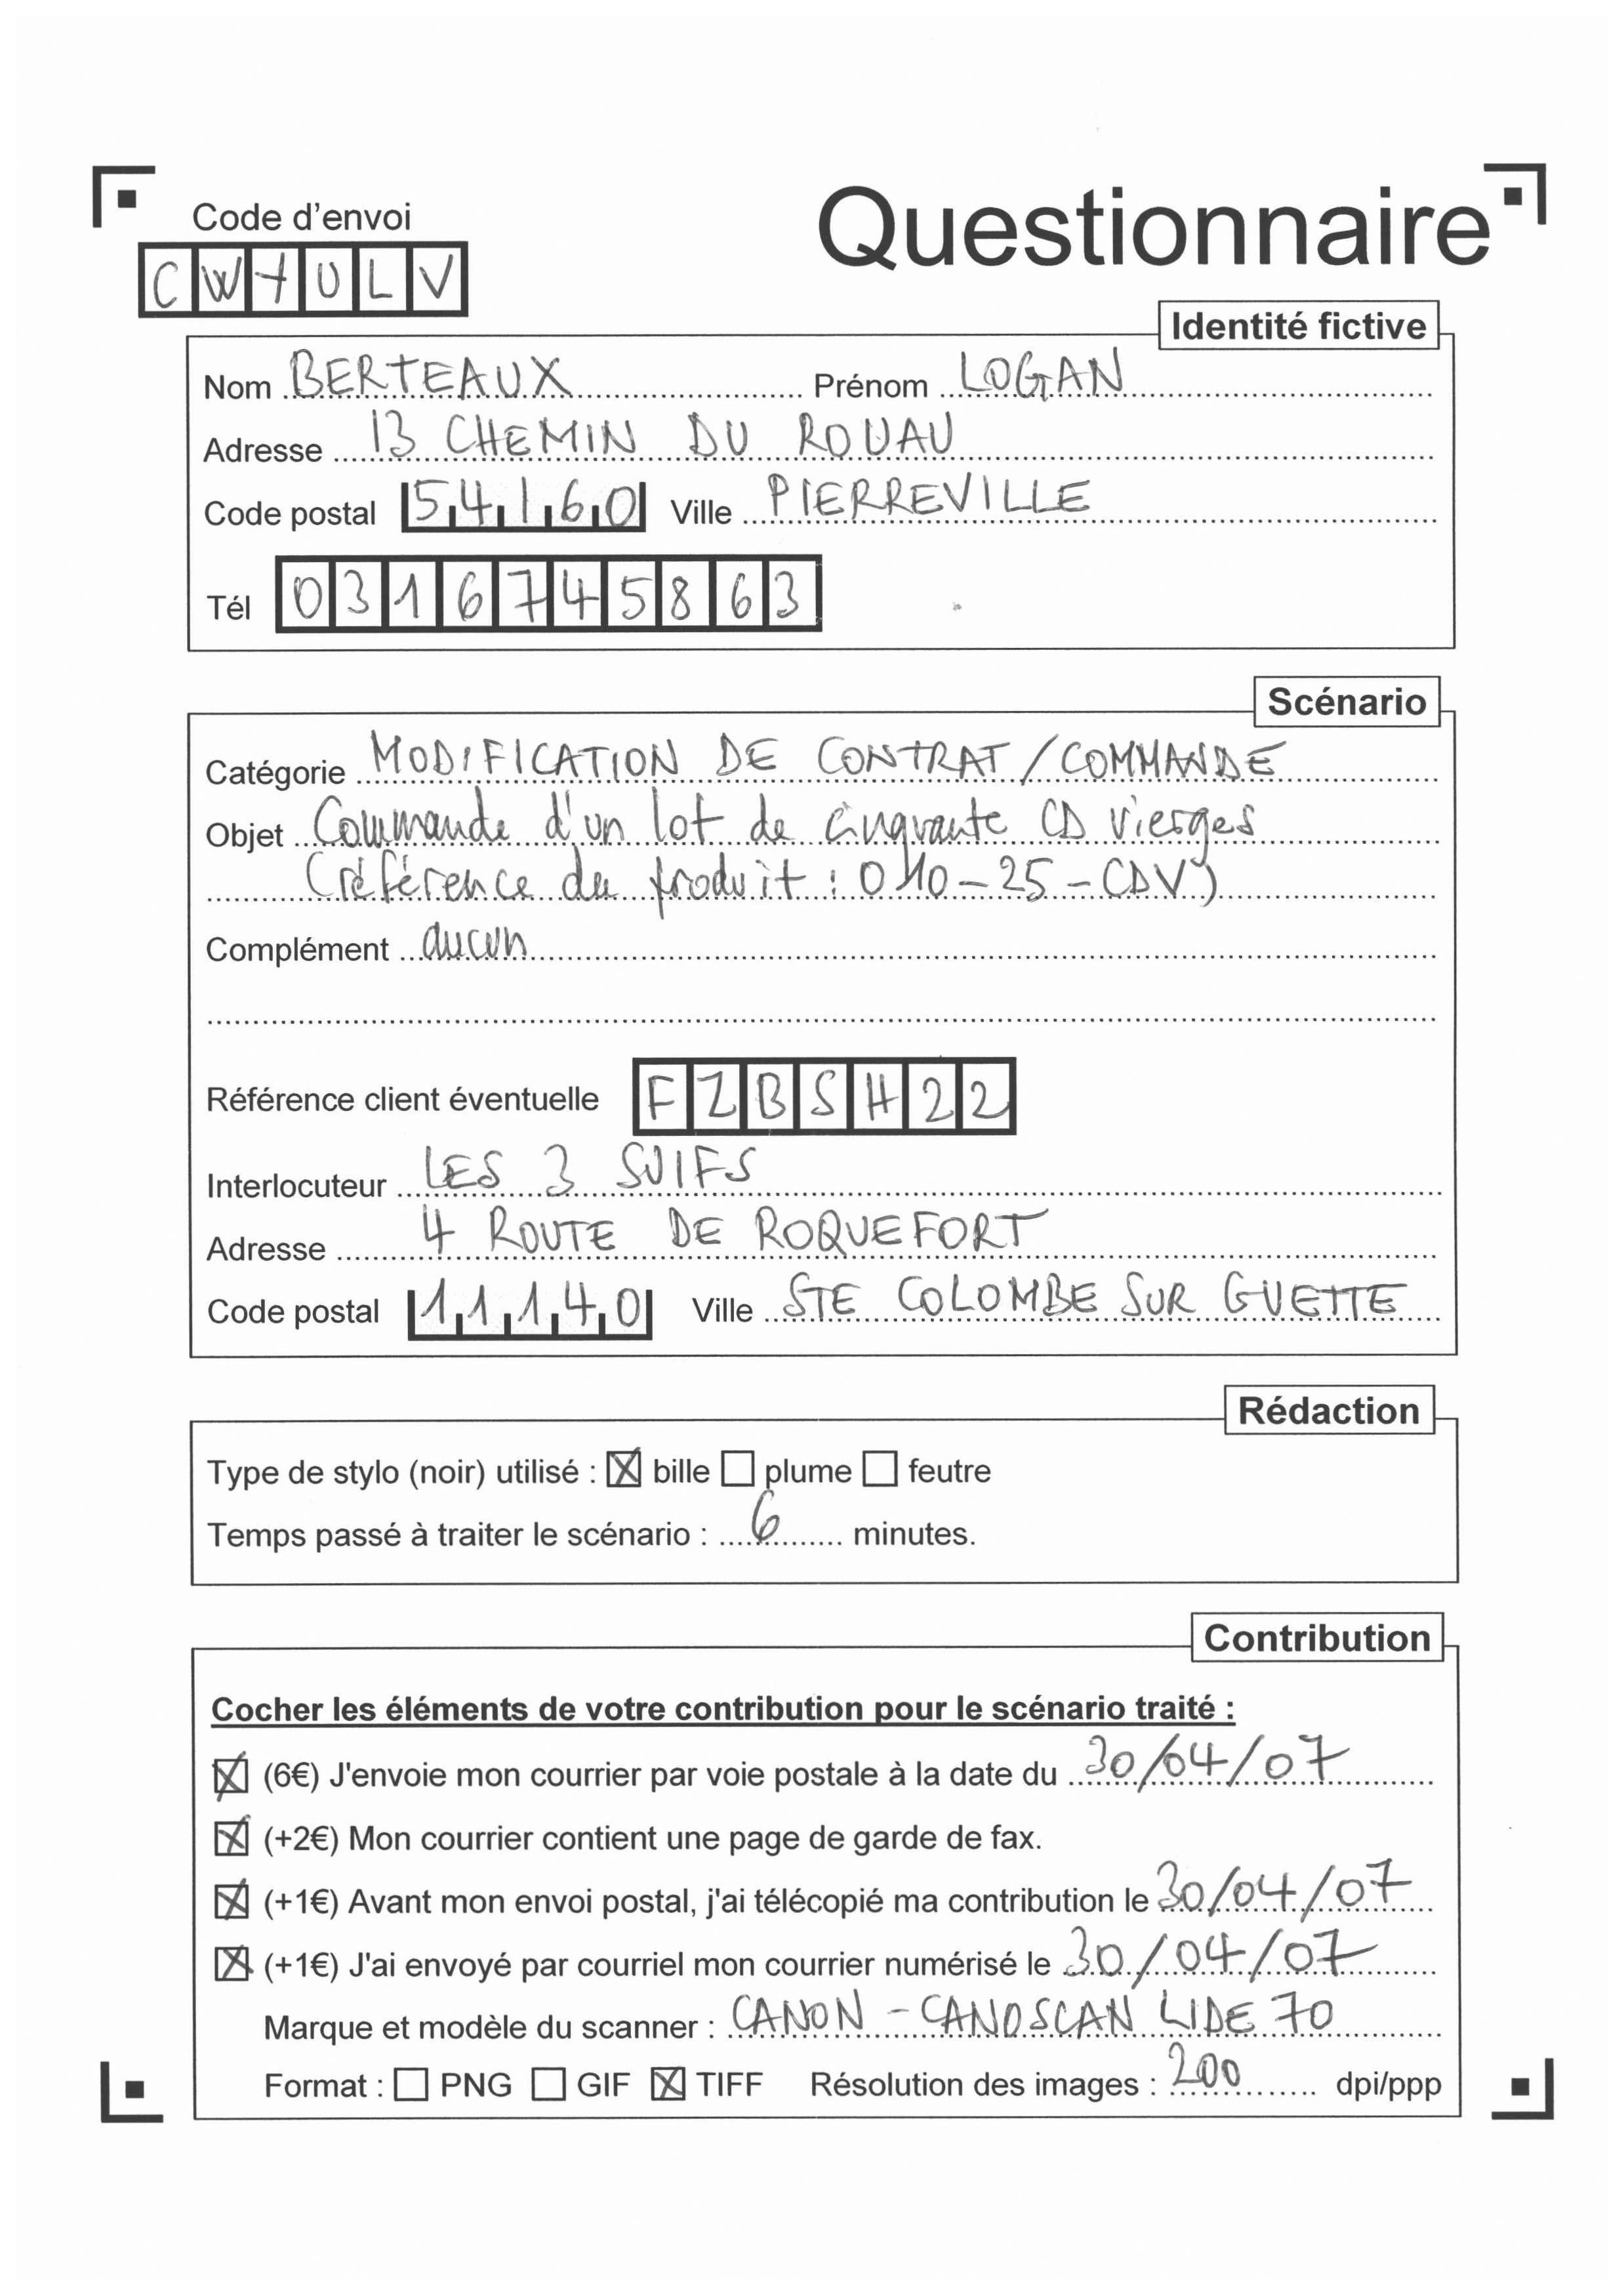 Code d'envoi
Questionnaire
CW7ULV
Identité fictive
Nom BERTEAUX Prénom LOGAN
Adresse 13 CHEMIN DU ROUAU
Code postal 54160 Ville PIERREVILLE
Tél 0316745863
Scénario
Catégorie MODIFICATION DE CONTRAT / COMMANDE
Objet Commande d'un lot de cinquante CD vierges
(référence du produit : 010-25-CDV)
Complément aucun
Référence client éventuelle FZBSH22
Interlocuteur LES 3 SUIFS
Adresse 4 ROUTE DE ROQUEFORT
Code postal 11140 Ville STE COLOMBE SUR GUETTE
Rédaction
Type de stylo (noir) utilisé : bille plume feutre
Temps passé à traiter le scénario : 6 minutes.
Contribution
Cocher les éléments de votre contribution pour le scénario traité :
(6€) J'envoie mon courrier par voie postale à la date du 30/04/07
(+2€) Mon courrier contient une page de garde de fax.
(+1€) Avant mon envoi postal, j'ai télécopié ma contribution le 30/04/07
(+1€) J'ai envoyé par courriel mon courrier numérisé le 30/04/07
Marque et modèle du scanner : CANON - CANOSCAN LIDE 70
Format : PNG GIF TIFF Résolution des images : 200 dpi/ppp